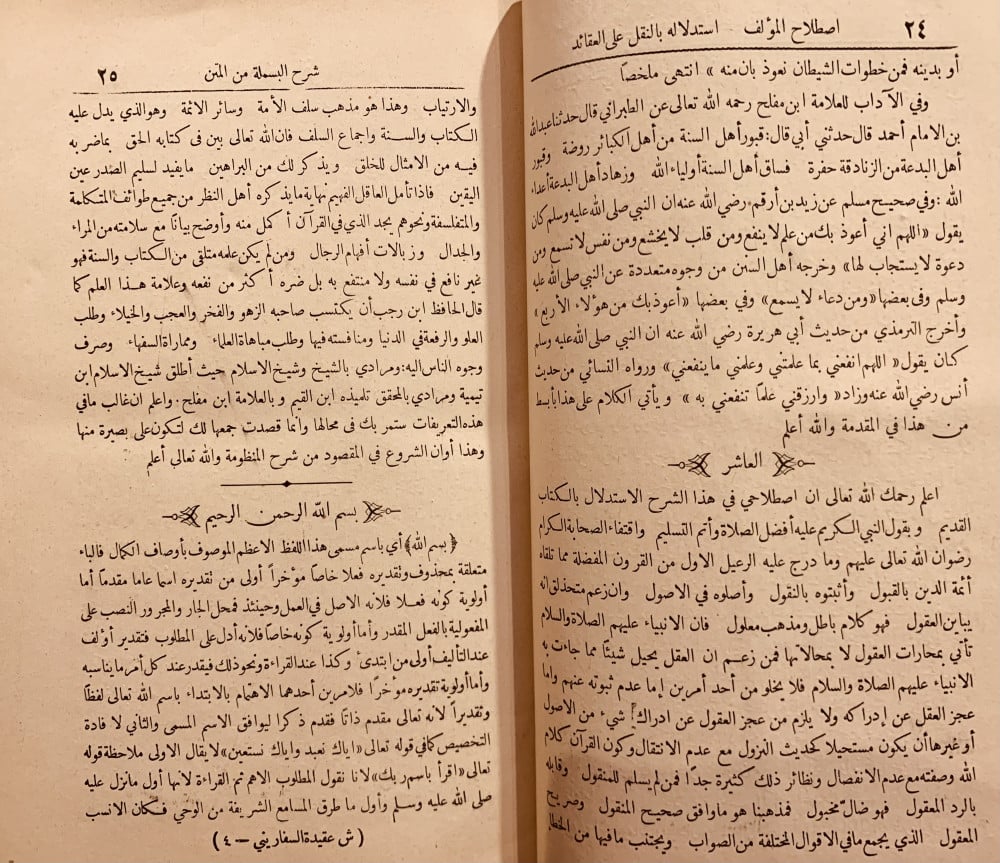 ٢٤ اصطلاح المؤلف - استدلاله بالنقل على العقائد
أو بدينه فمن خطوات الشيطان نعوذ بالله منه » انتهى ملخصاً
وفي الآداب للعلامة ابن مفلح رحمه الله تعالى عن الطبراني قال حدثنا عبدالله
بن الامام أحمد قال حدثني أبي قال: قبور أهل السنة من أهل الكبائر روضة وقبور
أهل البدعة من الزنادقة حفرة فساق أهل السنة أولياء الله وزهاد أهل البدعة أعداء
الله : وفي صحيح مسلم عن زيد بن أرقم رضي الله عنه ان النبي صلى الله عليه وسلم كان
يقول «اللهم اني أعوذ بك من علم لا ينفع ومن قلب لا يخشع ومن نفس لا تسمع ومن
دعوة لا يستجاب لها» وخرجه أهل السنن من وجوه متعددة عن النبي صلى الله عليه
وسلم وفى بعضها «ومن دعاء لا يسمع» وفي بعضها «أعوذ بك من هؤلاء الأربع»
وأخرج الترمذي من حديث أبي هريرة رضي الله عنه ان النبي صلى الله عليه وسلم
كان يقول «اللهم انفعني بما علمتني وعلمني ما ينفعني» ورواه النسائي من حديث
أنس رضي الله عنه وزاد« وارزقني علماً تنفعني به » و يأتي الكلام على هذا بأبسط
من هذا في المقدمة والله أعلم
العاشر
اعلم رحمك الله تعالى ان اصطلاحي في هذا الشرح الاستدلال بالكتاب
القديم وبقول النبي الكريم عليه أفضل الصلاة وأتم التسليم واقتفاء الصحابة الكرام
رضوان الله تعالى عليهم وما درج عليه الرعيل الاول من القرون المفضلة مما تلقاه
أئمة الدين بالقبول وأثبتوه بالنقول وأصلوه في الاصول وان زعم متحذلق انه
يباين العقول فهو كلام باطل ومذهب معلول فان الانبياء عليهم الصلاة والسلام
تأتي بمحارات العقول لا بمحالاتها فمن زعم ان العقل يحيل شيئاً مما جاءت به
الانبياء عليهم الصلاة والسلام فلا يخلو من أحد أمرين إما عدم ثبوته عنهم واما
عجز العقل عن إدراكه ولا يلزم من عجز العقول عن ادراك شيء من الاصول
أو غيرها أن يكون مستحيلا كحديث النزول مع عدم الانتقال وكون القرآن كلام
الله وصفته مع عدم الانفصال ونظائر ذلك كثيرة جداً فمن لم يسلم للمنقول وقابله
بالرد المعقول فهو ضال مخبول فمذهبنا هو ما وافق صحيح المنقول وصريح
المعقول الذي يجمع مافي الاقوال المختلفة من الصواب ويجتنب مافيها من الخطا
شرح البسملة من المتن ٢٥
والارتياب وهذا هو مذهب سلف الأمة وسائر الائمة وهو الذي يدل عليه
الكتاب والسنة واجماع السلف فان الله تعالى بين فى كتابه الحق بما ضر به
فيه من الامثال للخلق ويذكر لك من البراهين ما يفيد لسليم الصدر عين
اليقين فاذا تأمل العاقل الفهيم نهاية ما يذكره أهل النظر من جميع طوائف المتكلمة
والمتفلسفة ونحوهم يجد الذي في القرآن أكمل منه وأوضح بيانًا مع سلامته من المراء
والجدال وزبالات أفهام الرجال ومن لم يكن علمه متلقى من الكتاب والسنة فهو
غير نافع في نفسه ولا منتفع به بل ضره أكثر من نفعه وعلامة هذا العلم كما
قال الحافظ ابن رجب أن يكتسب صاحبه الزهو والفخر والعجب والخيلاء وطلب
العلو والرفعة في الدنيا ومنافسته فيها وطلب مباهاة العلماء ومماراة السفهاء وصرف
وجوه الناس اليه: ومرادي بالشيخ وشيخ الاسلام حيث أطلق شيخ الاسلام ابن
تيمية ومرادي بالمحقق تلميذه ابن القيم وبالعلامة ابن مفلح. واعلم ان غالب مافي
هذه التعريفات ستمر بك فى محالها وانما قصدت جمعها لك لتكون على بصيرة منها
وهذا أوان الشروع في المقصود من شرح المنظومة والله تعالى أعلم
بسم الله الرحمن الرحيم
﴿بسم الله﴾ أي باسم مسمى هذا اللفظ الاعظم الموصوف بأوصاف الكمال فالباء
متعلقة بمحذوف وتقديره فعلا خاصاً مؤخراً أولى من تقديره اسما عاما مقدماً أما
أولوية كونه فعلا فلأنه الاصل في العمل وحينئذ فمحل الجار والمجرور النصب على
المفعولية بالفعل المقدر وأما أولوية كونه خاصاً فلأنه أدل على المطلوب فتقدير أؤلف
عند التأليف أولى من ابتدئ وكذا عند القراءة ونحو ذلك فيقدر عند كل أمر ما يناسبه
وأما أولوية تقديره مؤخراً فلأمرين أحدهما الاهتمام بالابتداء باسم الله تعالى لفظاً
وتقديراً لأنه تعالى مقدم ذاتاً فقدم ذكرا ليوافق الاسم المسمى والثاني لافادة
التخصيص كما في قوله تعالى «اياك نعبد واياك نستعين» لا يقال الاولى ملاحظة قوله
تعالى «اقرأ باسم ربك» لانا نقول المطلوب الاهم ثم القراءة لأنها أول مانزل عليه
صلى الله عليه وسلم وأول ما طرق المسامع الشريفة من الوحي فكان الانسب
( ش عقيدة السفاريني – ٤ )